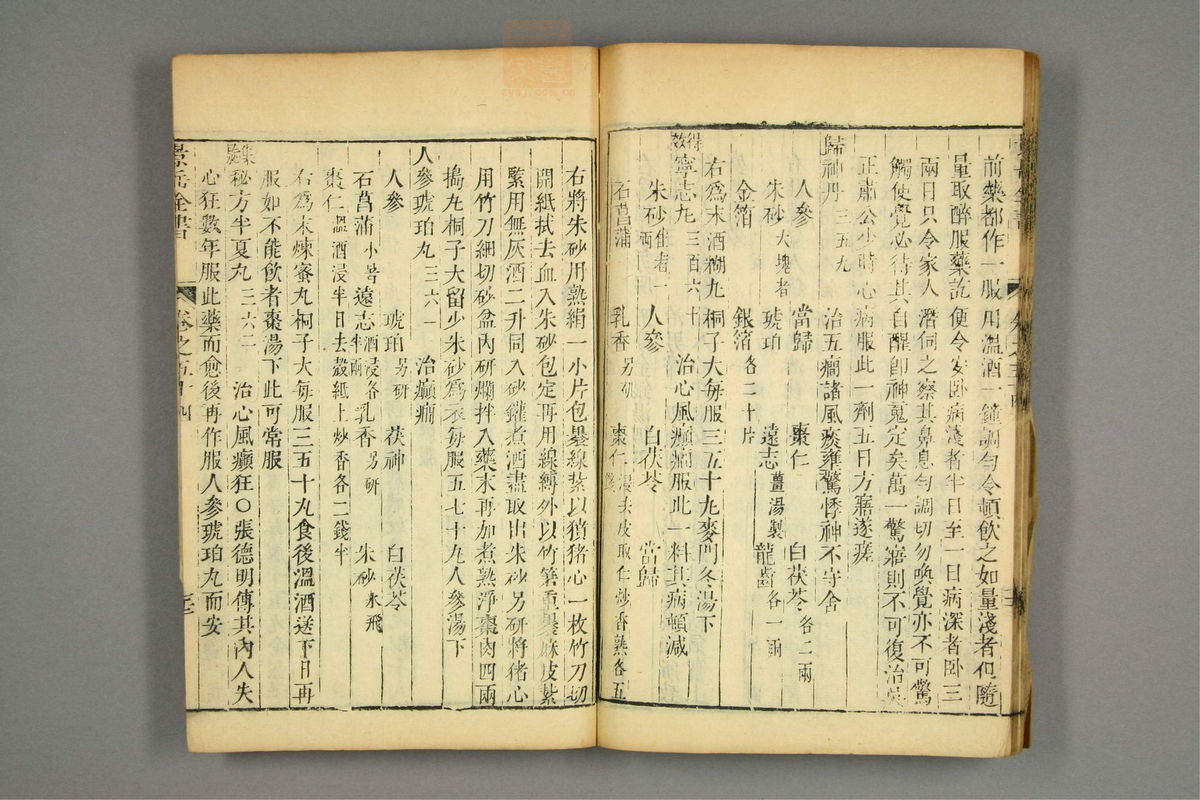 前藥都作一服用溫酒一鐘調勻令頓飲之如量淺者但隨
量取醉服藥訖便令安卧病淺者半日至一日病深者卧三
兩日只令家人潛伺之察其鼻息勻調切勿喚覺亦不可驚
觸使覺必待其自醒卽神䰟定矣萬一驚寤則不可復治吳
正肅公少時心病服此一劑五日方寤遂瘥
歸神丹 三五九 治五癎諸風痰壅驚悸神不守舍
人參 當歸 棗仁 白茯苓各二兩
朱砂大塊者 琥珀 遠志薑湯製 龍齒各一兩
金箔 銀箔各二十片
右爲末酒糊丸桐子大每服三五十丸麥門冬湯下
得效寧志丸 三百六十 治心風癲癎服此一料其病頓減
朱砂佳者一兩 人參 白茯苓 當歸
石菖蒲 乳香另研 棗仁浸去皮取仁炒香熟各五錢
右將朱砂用熟絹一小片包褁線紮以獖猪心一枚竹刀切
開紙拭去血入朱砂包定再用線縛外以竹箬重褁麻皮紮
緊用無灰酒二升同入砂鑵煮酒盡取出朱砂另研將猪心
用竹刀細切砂盆內研爛拌入藥末再加煮熟淨棗肉四兩
搗丸桐子大留少朱砂爲衣每服五七十丸人參湯下
人參琥珀丸 三六一 治癲癎
人參 琥珀另研 茯神 白茯苓
石菖蒲小者 遠志酒浸各半兩 乳香另研 朱砂水飛
棗仁溫酒浸半日去殼紙上炒香各二錢半
右爲末煉蜜丸桐子大每服三五十丸食後溫酒送下日再
服如不能飲者棗湯下此可常服
集驗秘方半夏丸 三六二 治心風癲狂○張德明傳其內人失
心狂數年服此藥而愈後再作服人參琥珀丸而安
景岳全書 卷之五十四